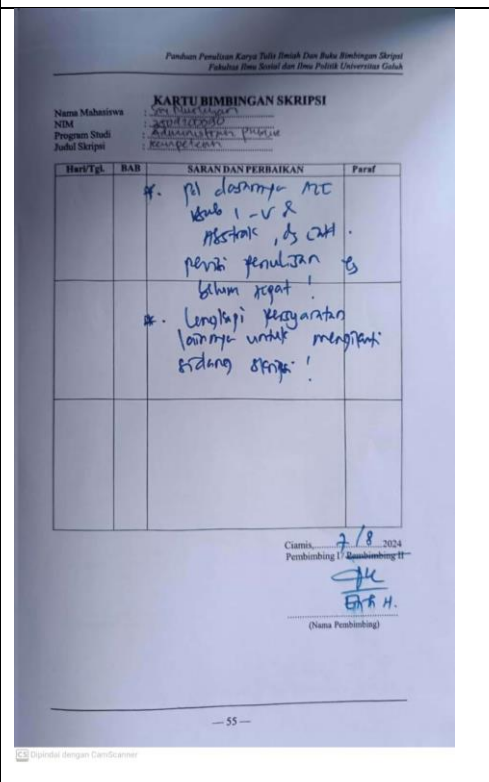 Panduan Penulisan Karya Tulis Ilmiah Dan Buku Bimbingan Skripsi
Fakultas Ilmu Sosial dan Ilmu Politik Universitas Galuh
KARTU BIMBINGAN SKRIPSI
Nama Mahasiswa : Sri Nurliyani
NIM :
Program Studi : Administrasi Publik
Judul Skripsi : Kompetensi
Hari/Tgl. BAB SARAN DAN PERBAIKAN Paraf
pd dasarnya ACC
Bab I - V &
Abstrak, dg catt.
revisi penulisan yg
belum tepat !
Lengkapi persyaratan
lainnya untuk mengikuti
sidang skripsi !
Ciamis, 7/8 2024
Pembimbing I / Pembimbing II
H.
(Nama Pembimbing)
— 55 —
CS Dipindai dengan CamScanner